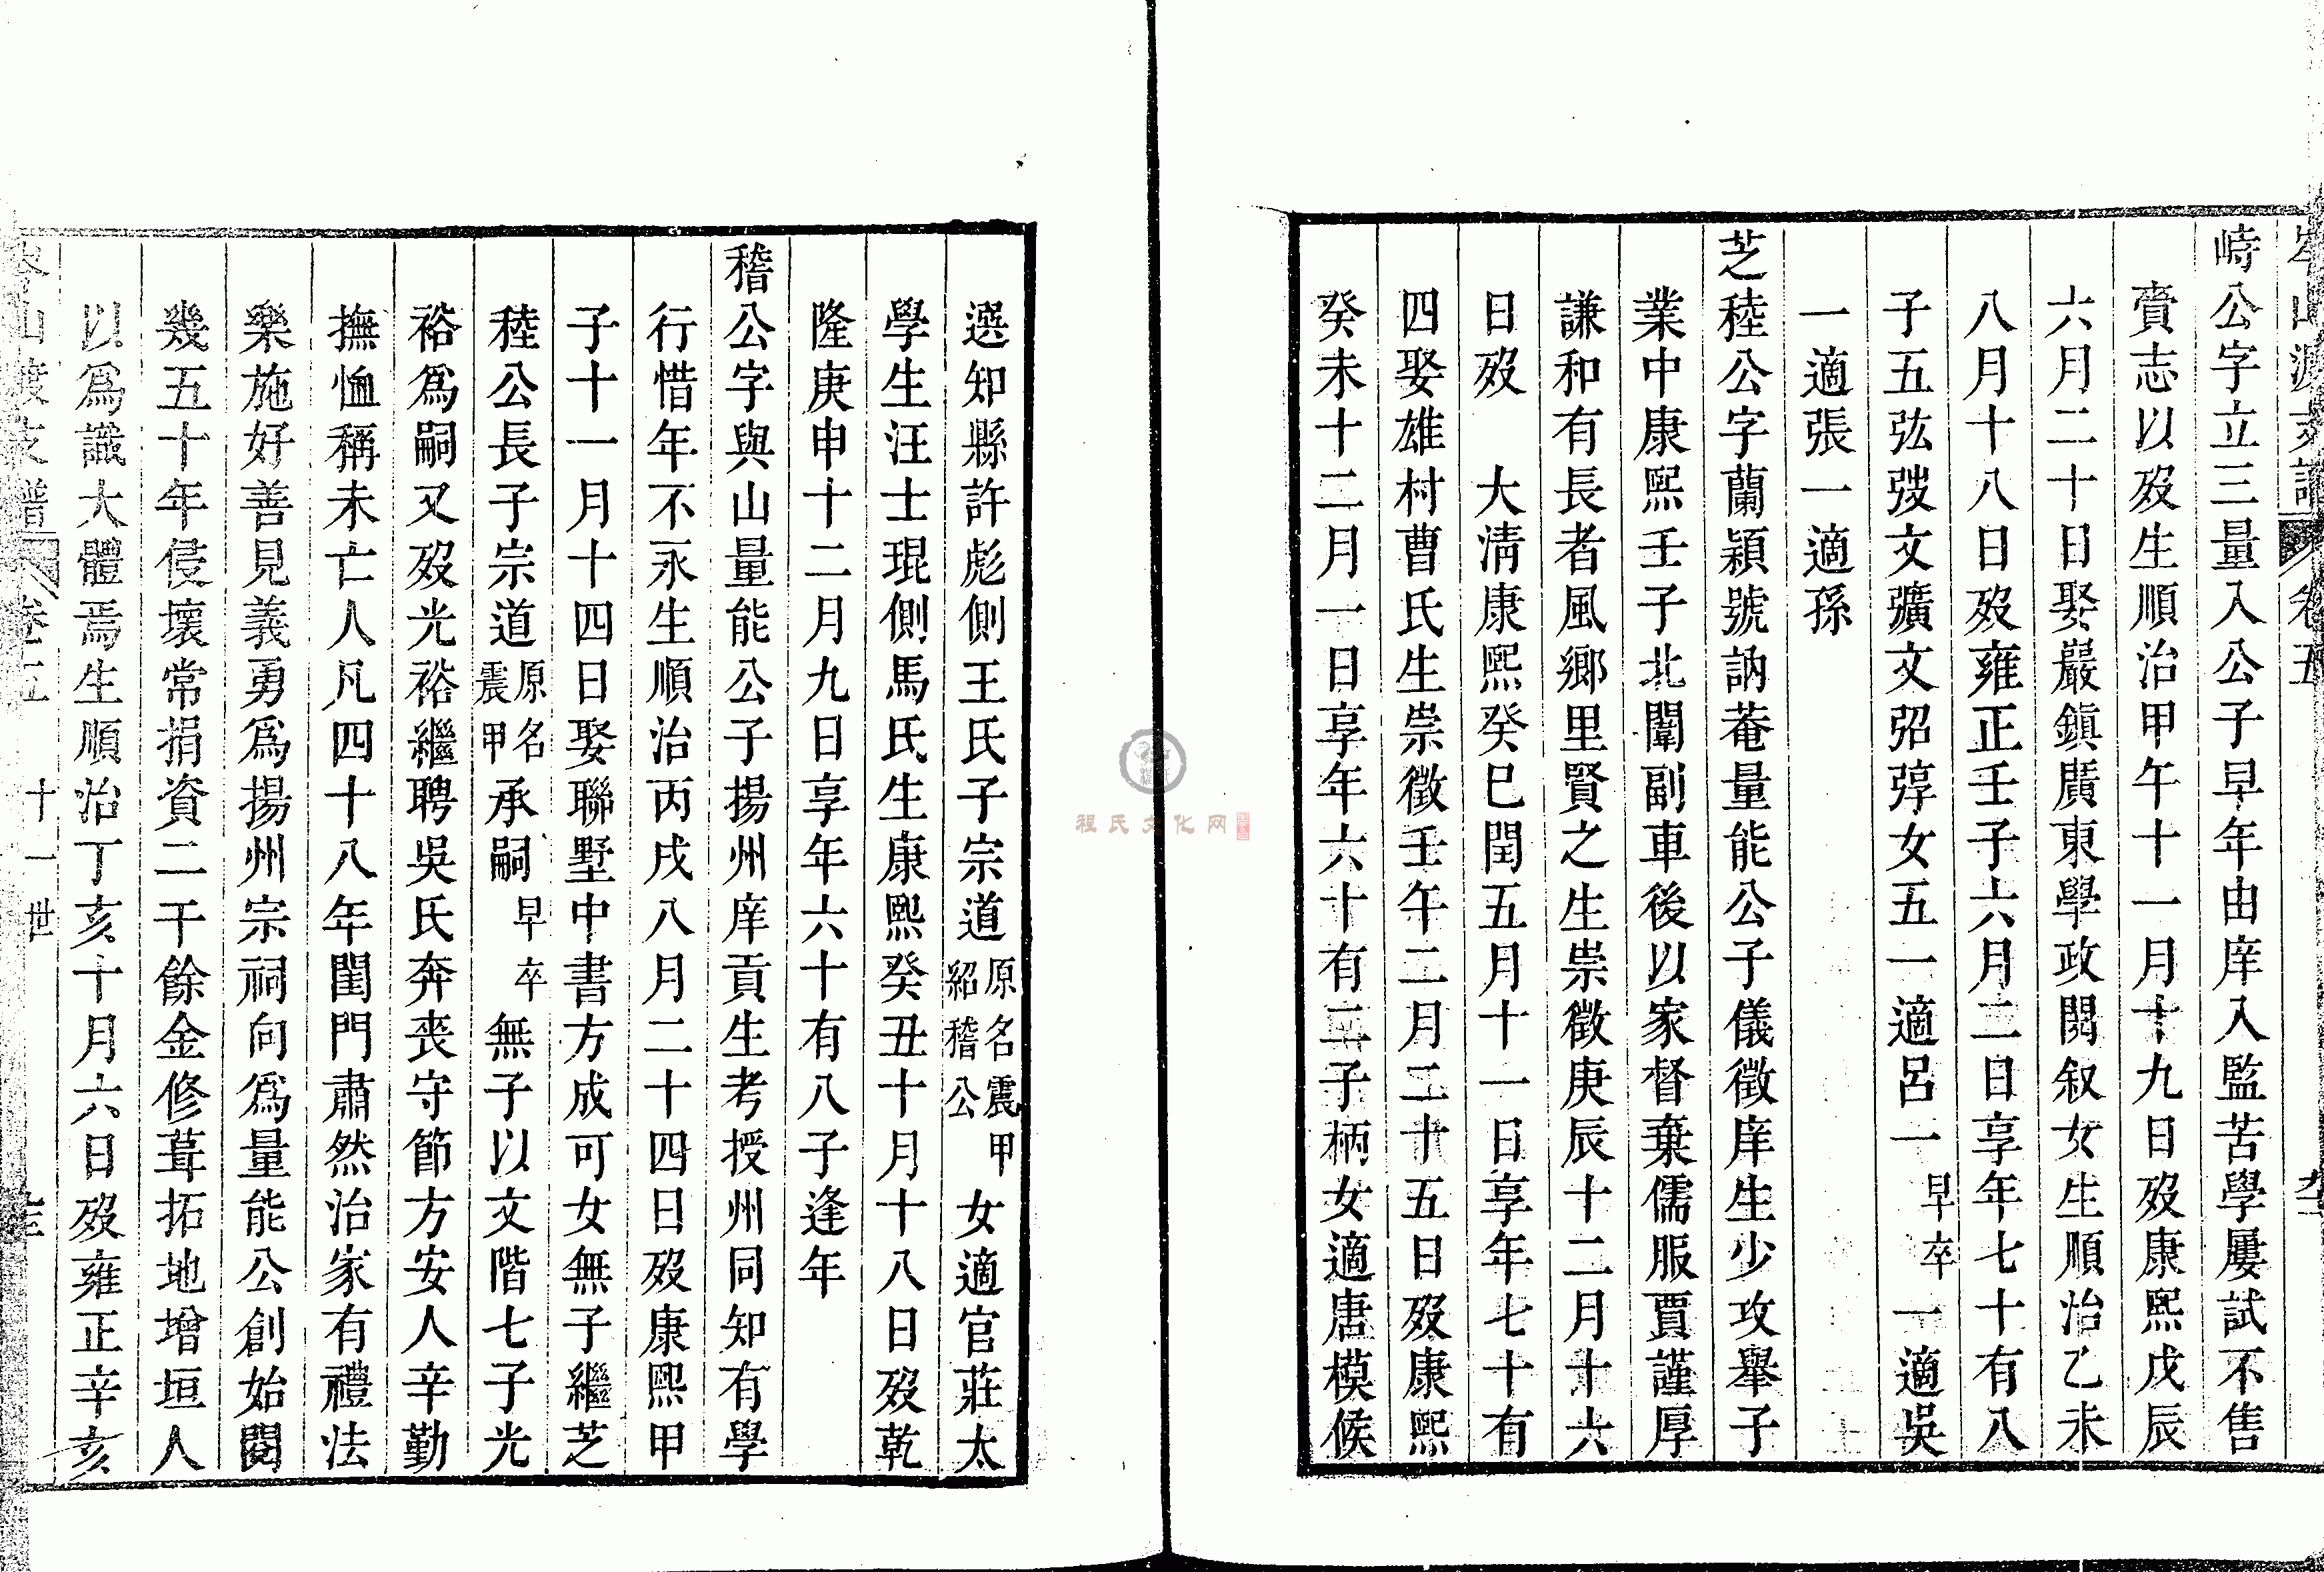 峙公字立三量入公子早年由庠入監苦學屢試不售
賫志以歿生順治甲午十一月十九日歿康熙戊辰
六月二十日娶嚴鎮廣東學政閔叙女生順治乙未
八月十八日歿雍正壬子六月二日享年七十有八
子五弦文弢文彍文弨弴女五一適呂一早卒一適吳
一適張一適孫
芝稑公字蘭穎號訥菴量能公子儀徵庠生少攻舉子
業中康熙壬子北闈副車後以家督棄儒服賈謹厚
謙和有長者風鄉里賢之生崇徵庚辰十二月十六
日歿 大清康熙癸巳閏五月十一日享年七十有
四娶雄村曹氏生崇徵壬午二月二十五日歿康熙
癸未十二月一日享年六十有二子柄女適唐模候
選知縣許彪側王氏子宗道原名震甲紹稽公女適官莊太
學生汪士琨側馬氏生康熙癸丑十月十八日歿乾
隆庚申十二月九日享年六十有八子逢年
稽公字與山量能公子揚州庠貢生考授州同知有學
行惜年不永生順治丙戌八月二十四日歿康熙甲
子十一月十四日娶聯墅中書方成可女無子繼芝
稑公長子宗道原名震甲承嗣早卒無子以文階七子光
裕爲嗣又歿光裕繼聘吳氏奔喪守節方安人辛勤
撫恤稱未亡人凡四十八年閨門肅然治家有禮法
樂施好善見義勇爲揚州宗祠向爲量能公創始閱
幾五十年侵壞常捐資二千餘金修葺拓地增垣人
以爲識大體焉生順治丁亥十月六日歿雍正辛亥
卷五 十一世
程氏文化网